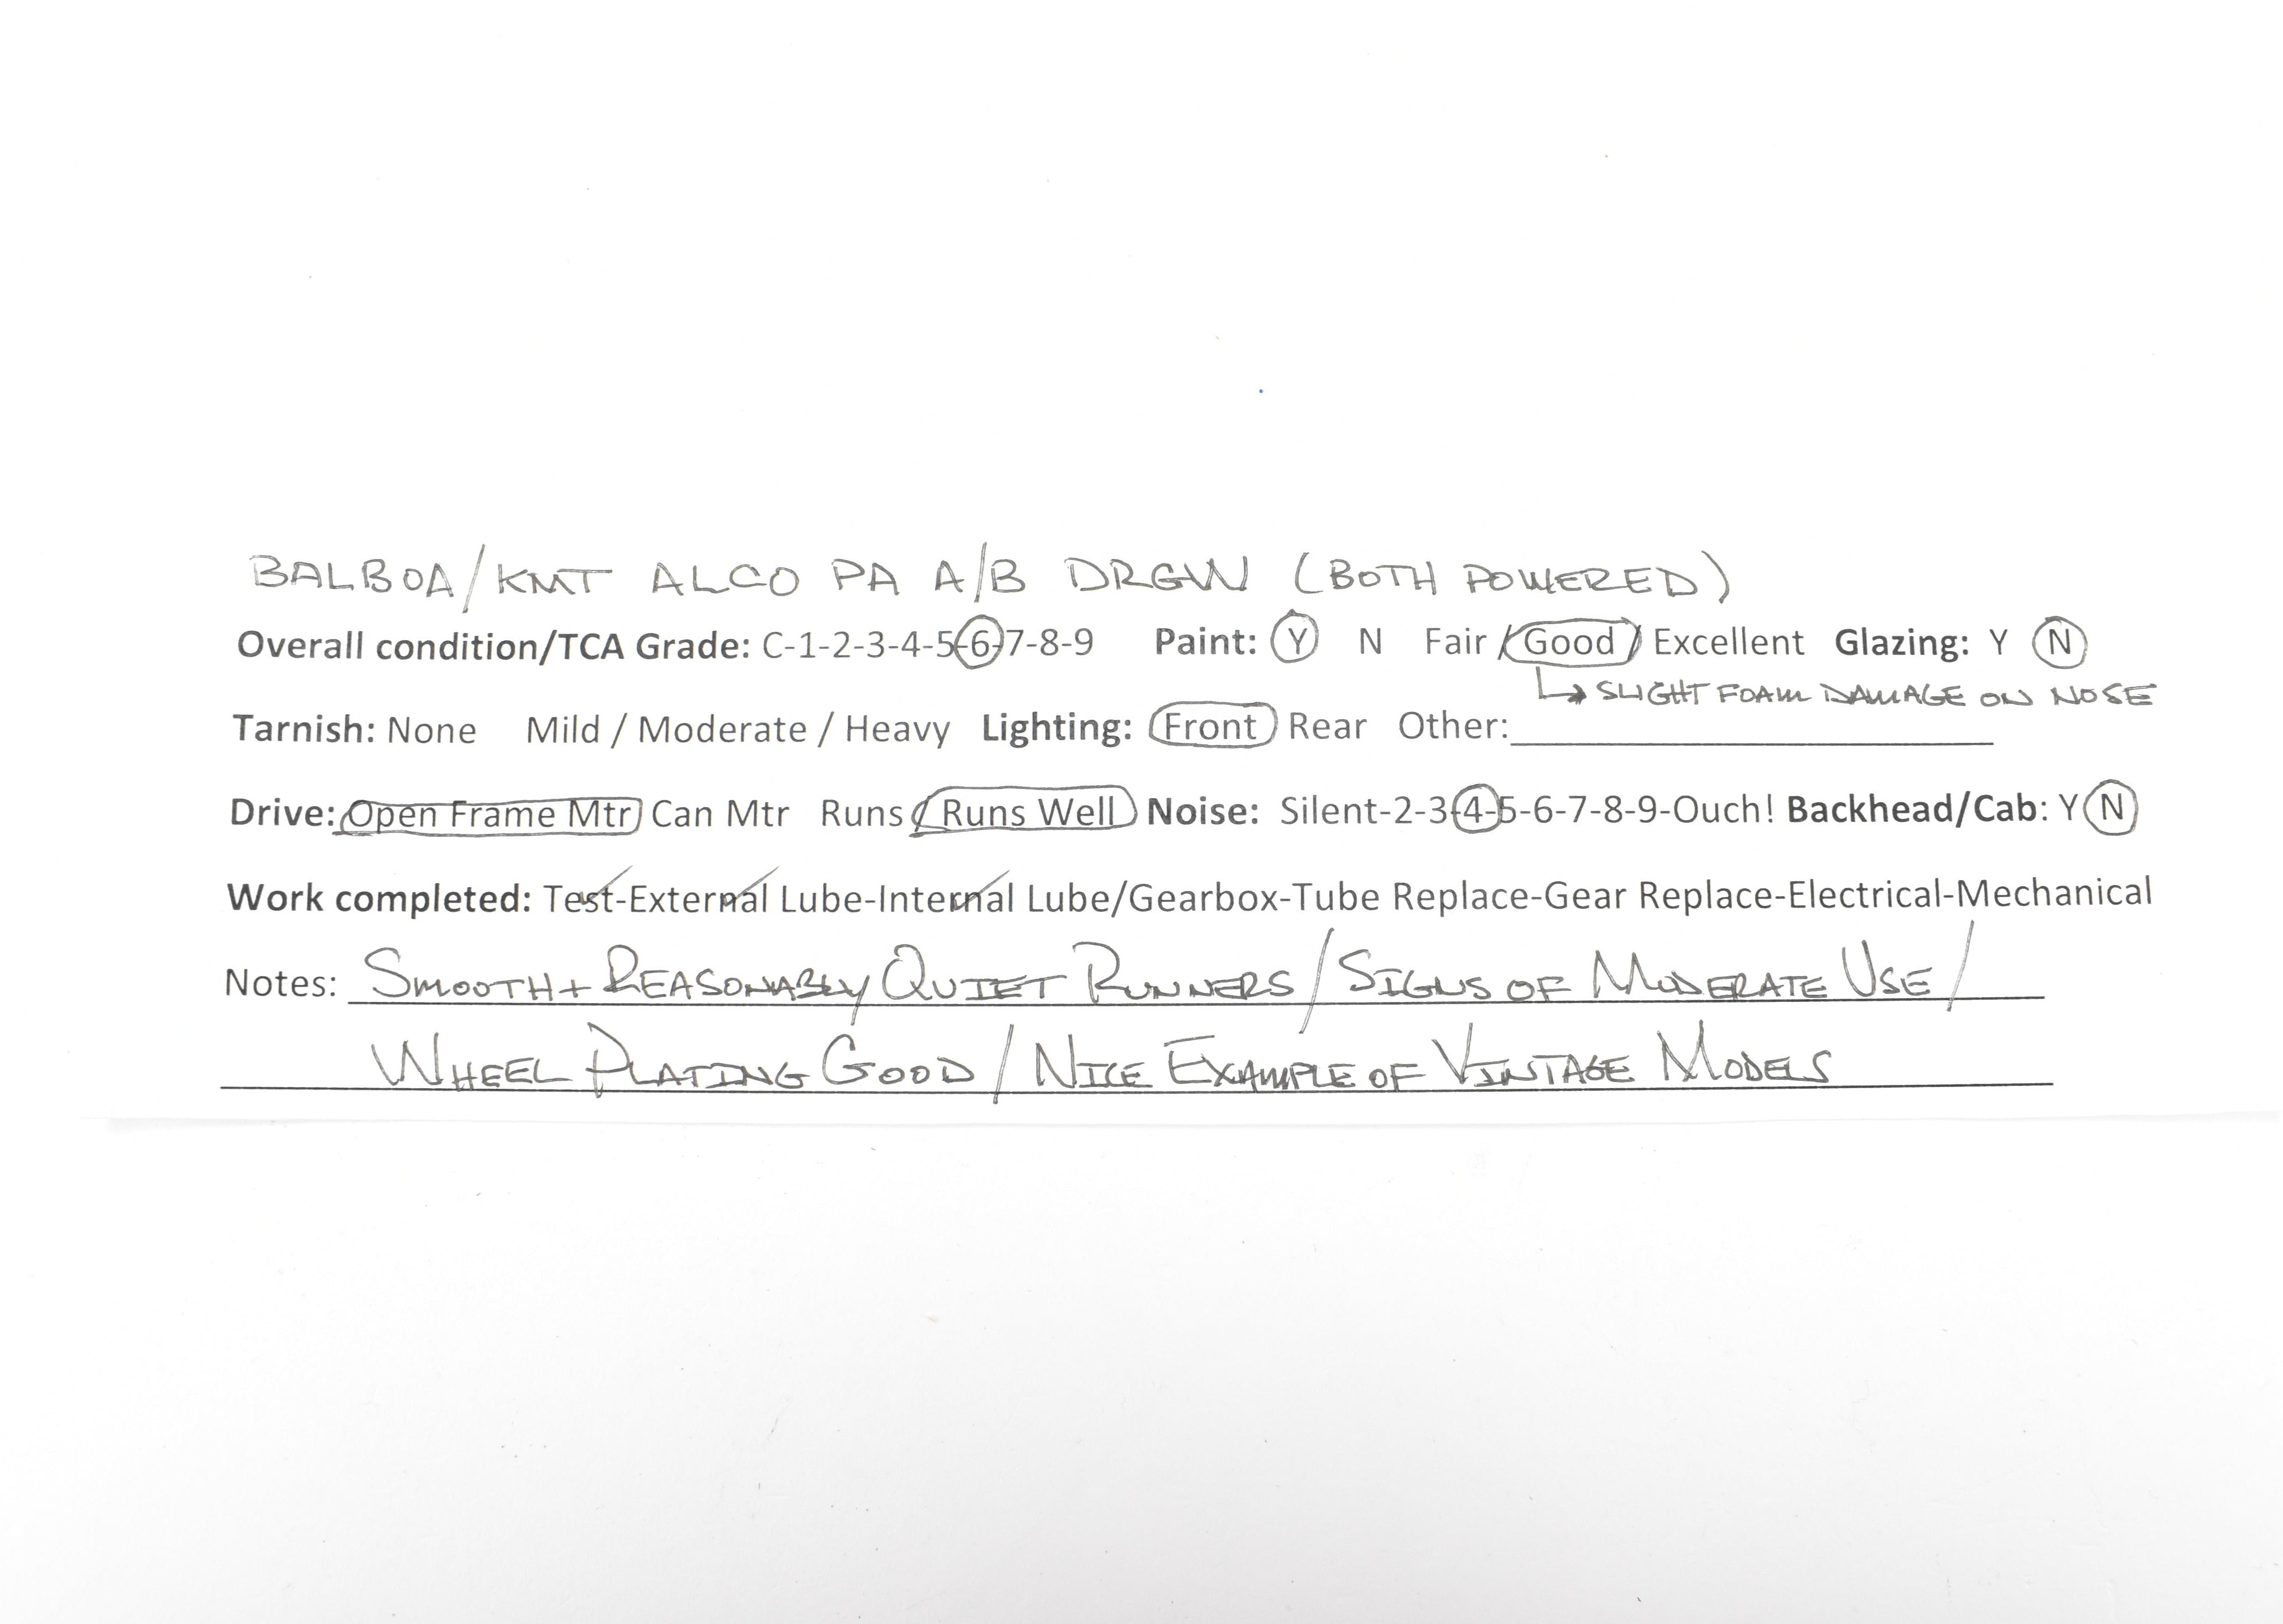 BALBOA/KMT ALCO PA A/B DRGW (BOTH POWERED)
Overall condition/TCA Grade: C-1-2-3-4-5-6-7-8-9 Paint: Y N Fair / Good / Excellent Glazing: Y N
↳ SLIGHT FOAM DAMAGE ON NOSE
Tarnish: None Mild / Moderate / Heavy Lighting: Front Rear Other:
Drive: Open Frame Mtr Can Mtr Runs / Runs Well Noise: Silent-2-3-4-5-6-7-8-9-Ouch! Backhead/Cab: Y N
Work completed: Test-External Lube-Internal Lube/Gearbox-Tube Replace-Gear Replace-Electrical-Mechanical
Notes: SMOOTH + REASONABLY QUIET RUNNERS / SIGNS OF MODERATE USE /
WHEEL PLATING GOOD / NICE EXAMPLE OF VINTAGE MODELS